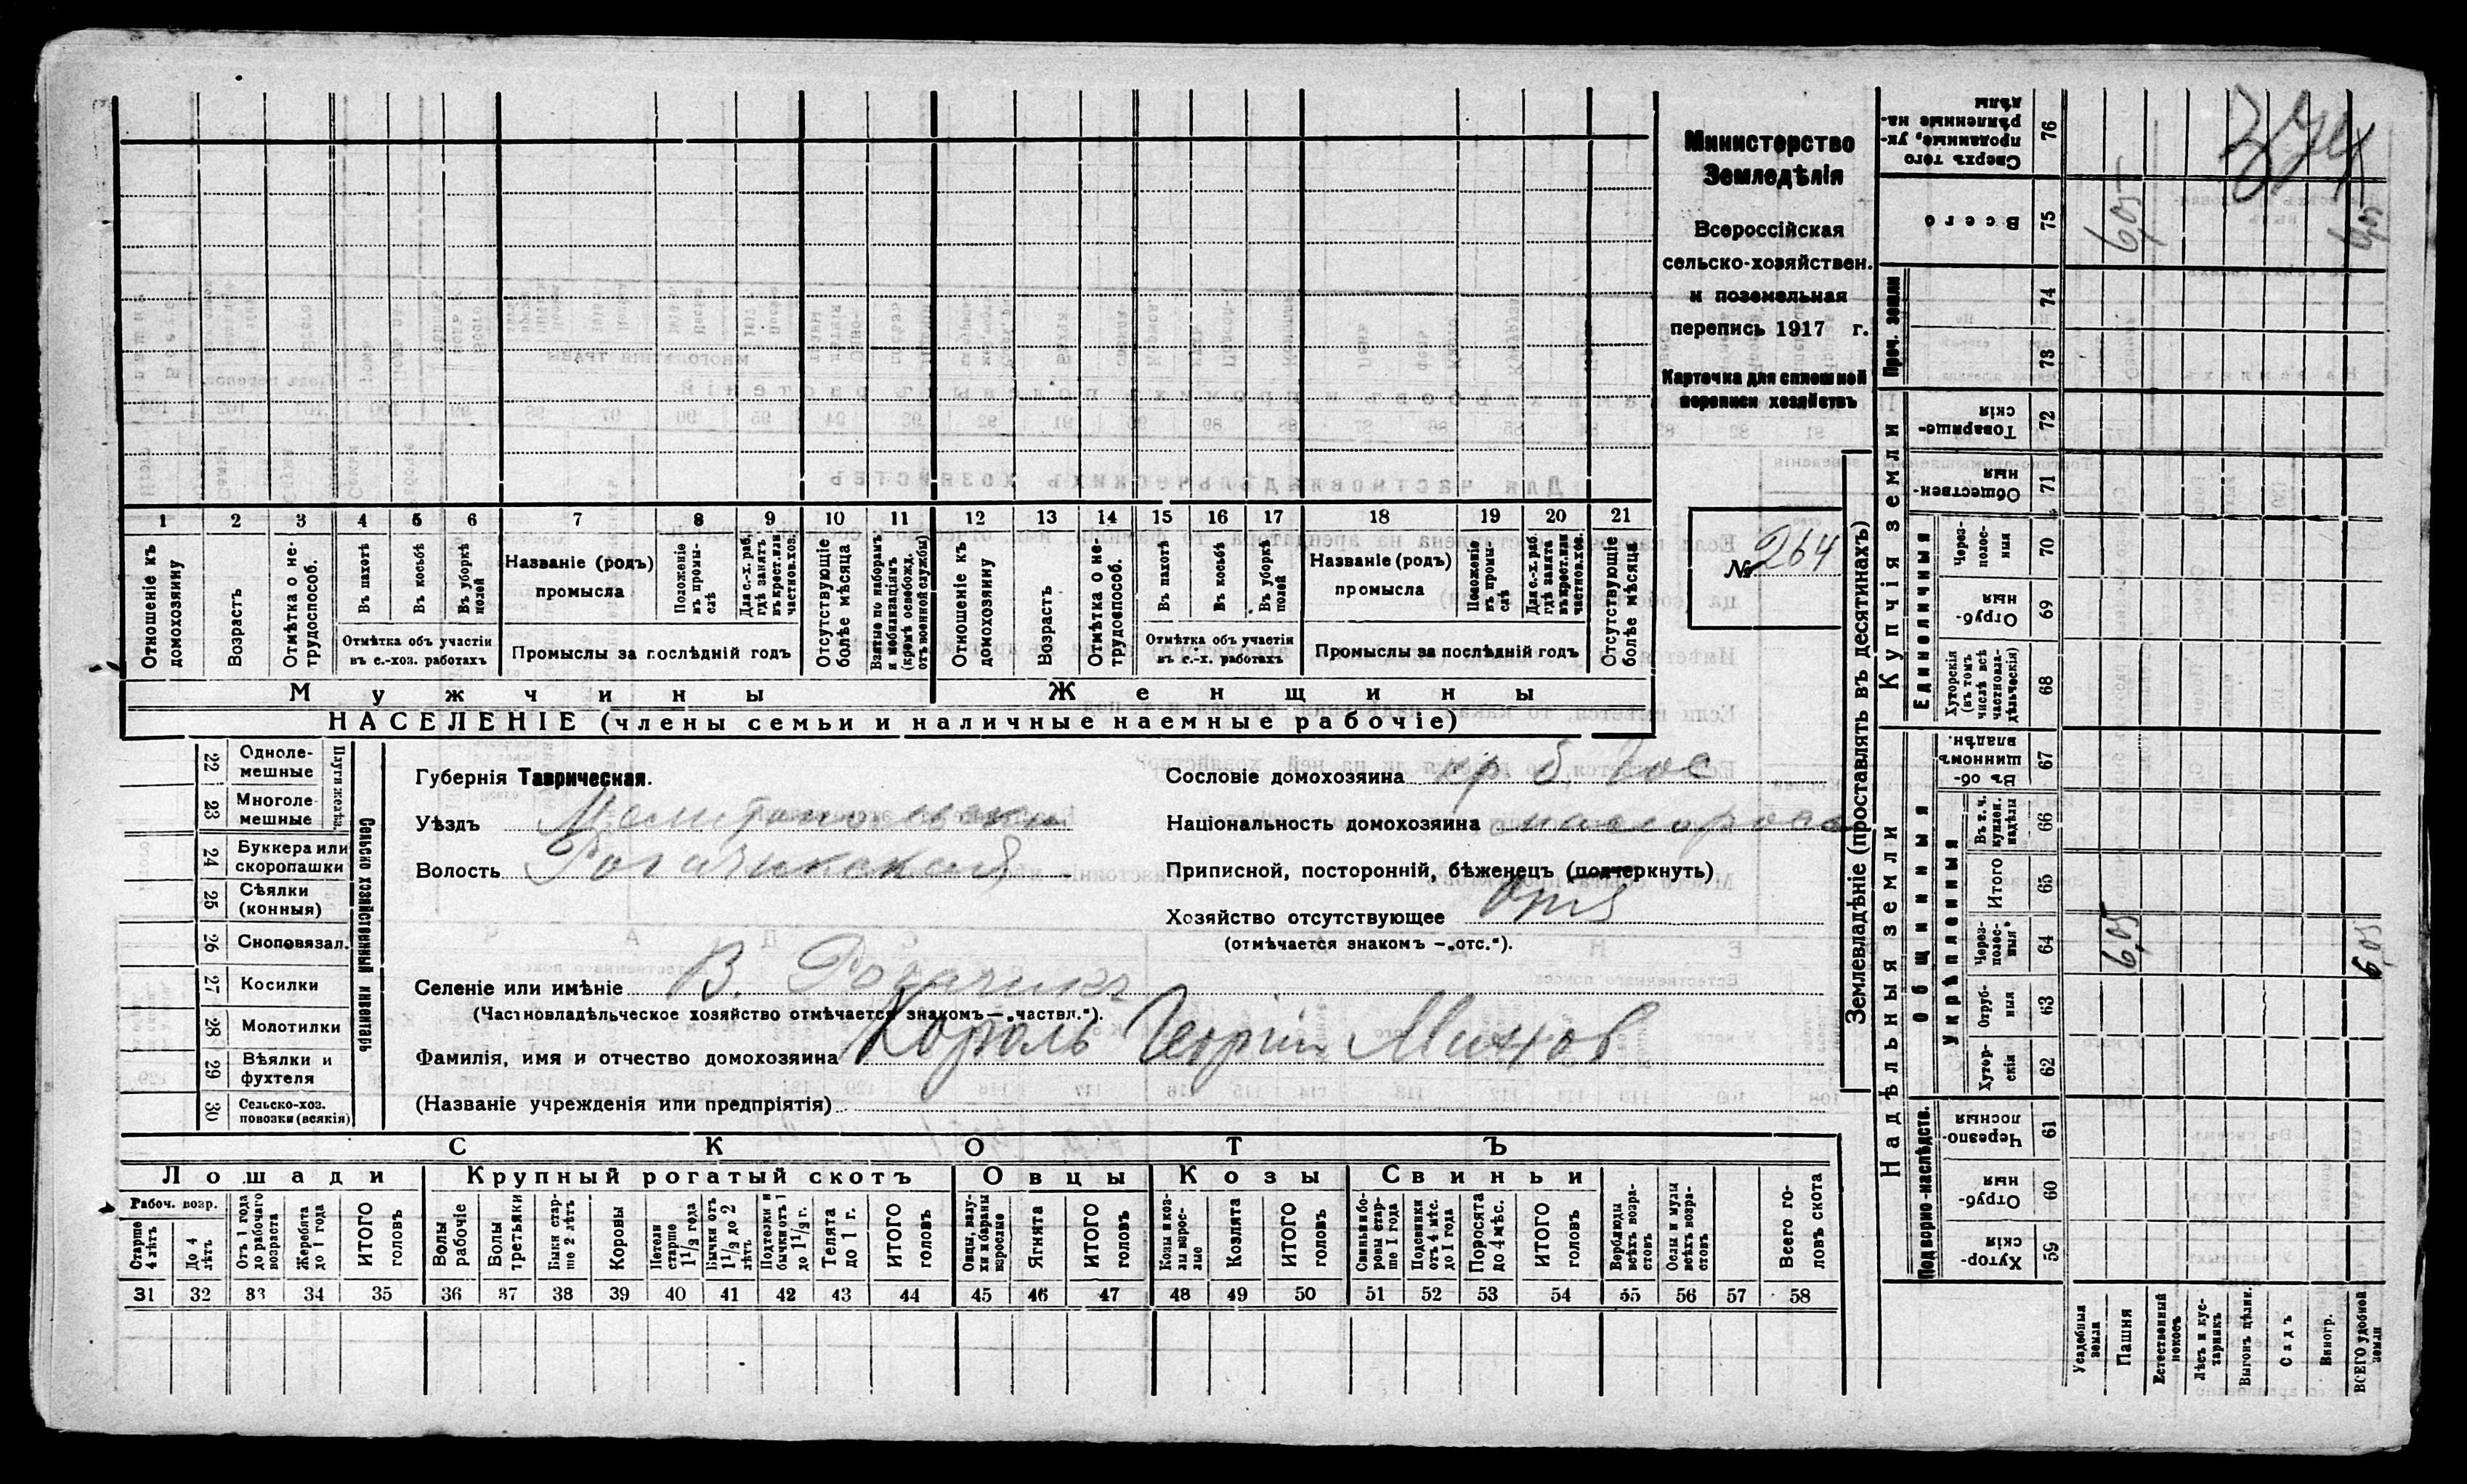 Министерство
Земледѣлія
Всероссійская
сельско-хозяйствен.
и поземельная
перепись 1917 г.
Карточка для сплошной
переписи хозяйствъ
№ 264
1 2 3 4 5 6 7 8 9 10 11 12 13 14 15 16 17 18 19 20 21
Отношеніе къ домохозяину
Возрастъ
Отмѣтка о не-трудоспособ.
Въ пахотѣ
Въ косьбѣ
Въ уборкѣ полей
Отмѣтка объ участіи
въ с.-хоз. работахъ
Названіе (родъ)
промысла
Положеніе въ промы-слѣ
Для с.-х. раб. гдѣ занятъ въ крест. или частнов. хоз.
Промыслы за послѣдній годъ
Отсутствующіе болѣе мѣсяца
Взятые по наборамъ и мобилизаціямъ (кромѣ освобожд. отъ военной службы)
Отношеніе къ домохозяину
Возрастъ
Отмѣтка о не-трудоспособ.
Въ пахотѣ
Въ косьбѣ
Въ уборкѣ полей
Отмѣтка объ участіи
въ с.-х. работахъ
Названіе (родъ)
промысла
Положеніе въ промы-слѣ
Для с.-х. раб. гдѣ занята въ крест. или частнов. хоз.
Промыслы за послѣдній годъ
Отсутствующіе болѣе мѣсяца
Мужчины Женщины
НАСЕЛЕНІЕ (члены семьи и наличные наемные рабочіе)
22 Одноле-мешные
23 Многоле-мешные
Плуги желѣз.
24 Буккера или скоропашки
25 Сѣялки (конныя)
26 Сноповязал.
27 Косилки
28 Молотилки
29 Вѣялки и фухтеля
30 Сельско-хоз. повозки (всякія)
Сельско хозяйственный инвентарь
Губернія Таврическая.
Уѣздъ Мелитопольскій
Волость Рогачикская
Селеніе или имѣніе В. Рогачикъ
(Частновладѣльческое хозяйство отмѣчается знакомъ—„частвл.“).
Фамилія, имя и отчество домохозяина Король Георгій
(Названіе учрежденія или предпріятія)
Сословіе домохозяина кр б. гос
Національность домохозяина малоросс
Приписной, посторонній, бѣженецъ (подчеркнуть)
Хозяйство отсутствующее
(отмѣчается знакомъ —„отс.“).
СКОТЪ
Лошади Крупный рогатый скотъ Овцы Козы Свиньи
Рабоч. возр.
Старше 4 лѣтъ
До 4 лѣтъ
Отъ 1 года до рабочаго возраста
Жеребята до 1 года
ИТОГО головъ
Волы рабочіе
Волы третьяки
Быки стар-ше 2 лѣтъ
Коровы
Нетели старше 1 1/2 года
Бычки отъ 1 1/2 до 2 лѣтъ
Подтелки и бычки отъ 1 до 1 1/2 г.
Телята до 1 г.
ИТОГО головъ
Овцы, валу-хи и бараны взрослые
Ягнята
ИТОГО головъ
Козы и коз-лы взрос-лые
Козлята
ИТОГО головъ
Свиньи и бо-ровы стар-ше 1 года
Подсвинки отъ 4 мѣс. до 1 года
Поросята до 4 мѣс.
ИТОГО головъ
Верблюды всѣхъ возра-стовъ
Ослы и мулы всѣхъ возра-стовъ
Всего го-ловъ скота
31 32 33 34 35 36 37 38 39 40 41 42 43 44 45 46 47 48 49 50 51 52 53 54 55 56 57 58
Землевладѣніе (проставлять въ десятинахъ)
Надѣльныя земли Купчія земли Проч. земли
Подворно-наслѣдств. Общинныя Единоличныя
Укрѣпленныя
59 Хутор-скія
60 Отруб-ныя
61 Черезпо-лосныя
62 Хутор-скія
63 Отруб-ныя
64 Черезполос-ныя 6,05 6,05
65 Итого
66 Въ т. ч. куплен. надѣлы
67 Въ об-щинномъ владѣн.
68 Хуторскія (въ томъ числѣ всѣ частновла-дѣльческія)
69 Отруб-ныя
70 Через-полос-ныя
71 Обществен-ныя
72 Товарище-скія
73
74
75 Всего 6,05 6,05
76 Сверхъ того проданные, ук-рѣпленные на-дѣлы
Усадебныя земли
Пашня
Естественный покосъ
Лѣсъ и кус-тарникъ
Выгонъ цѣлин.
Садъ
Виногр.
ВСЕГО удобной земли